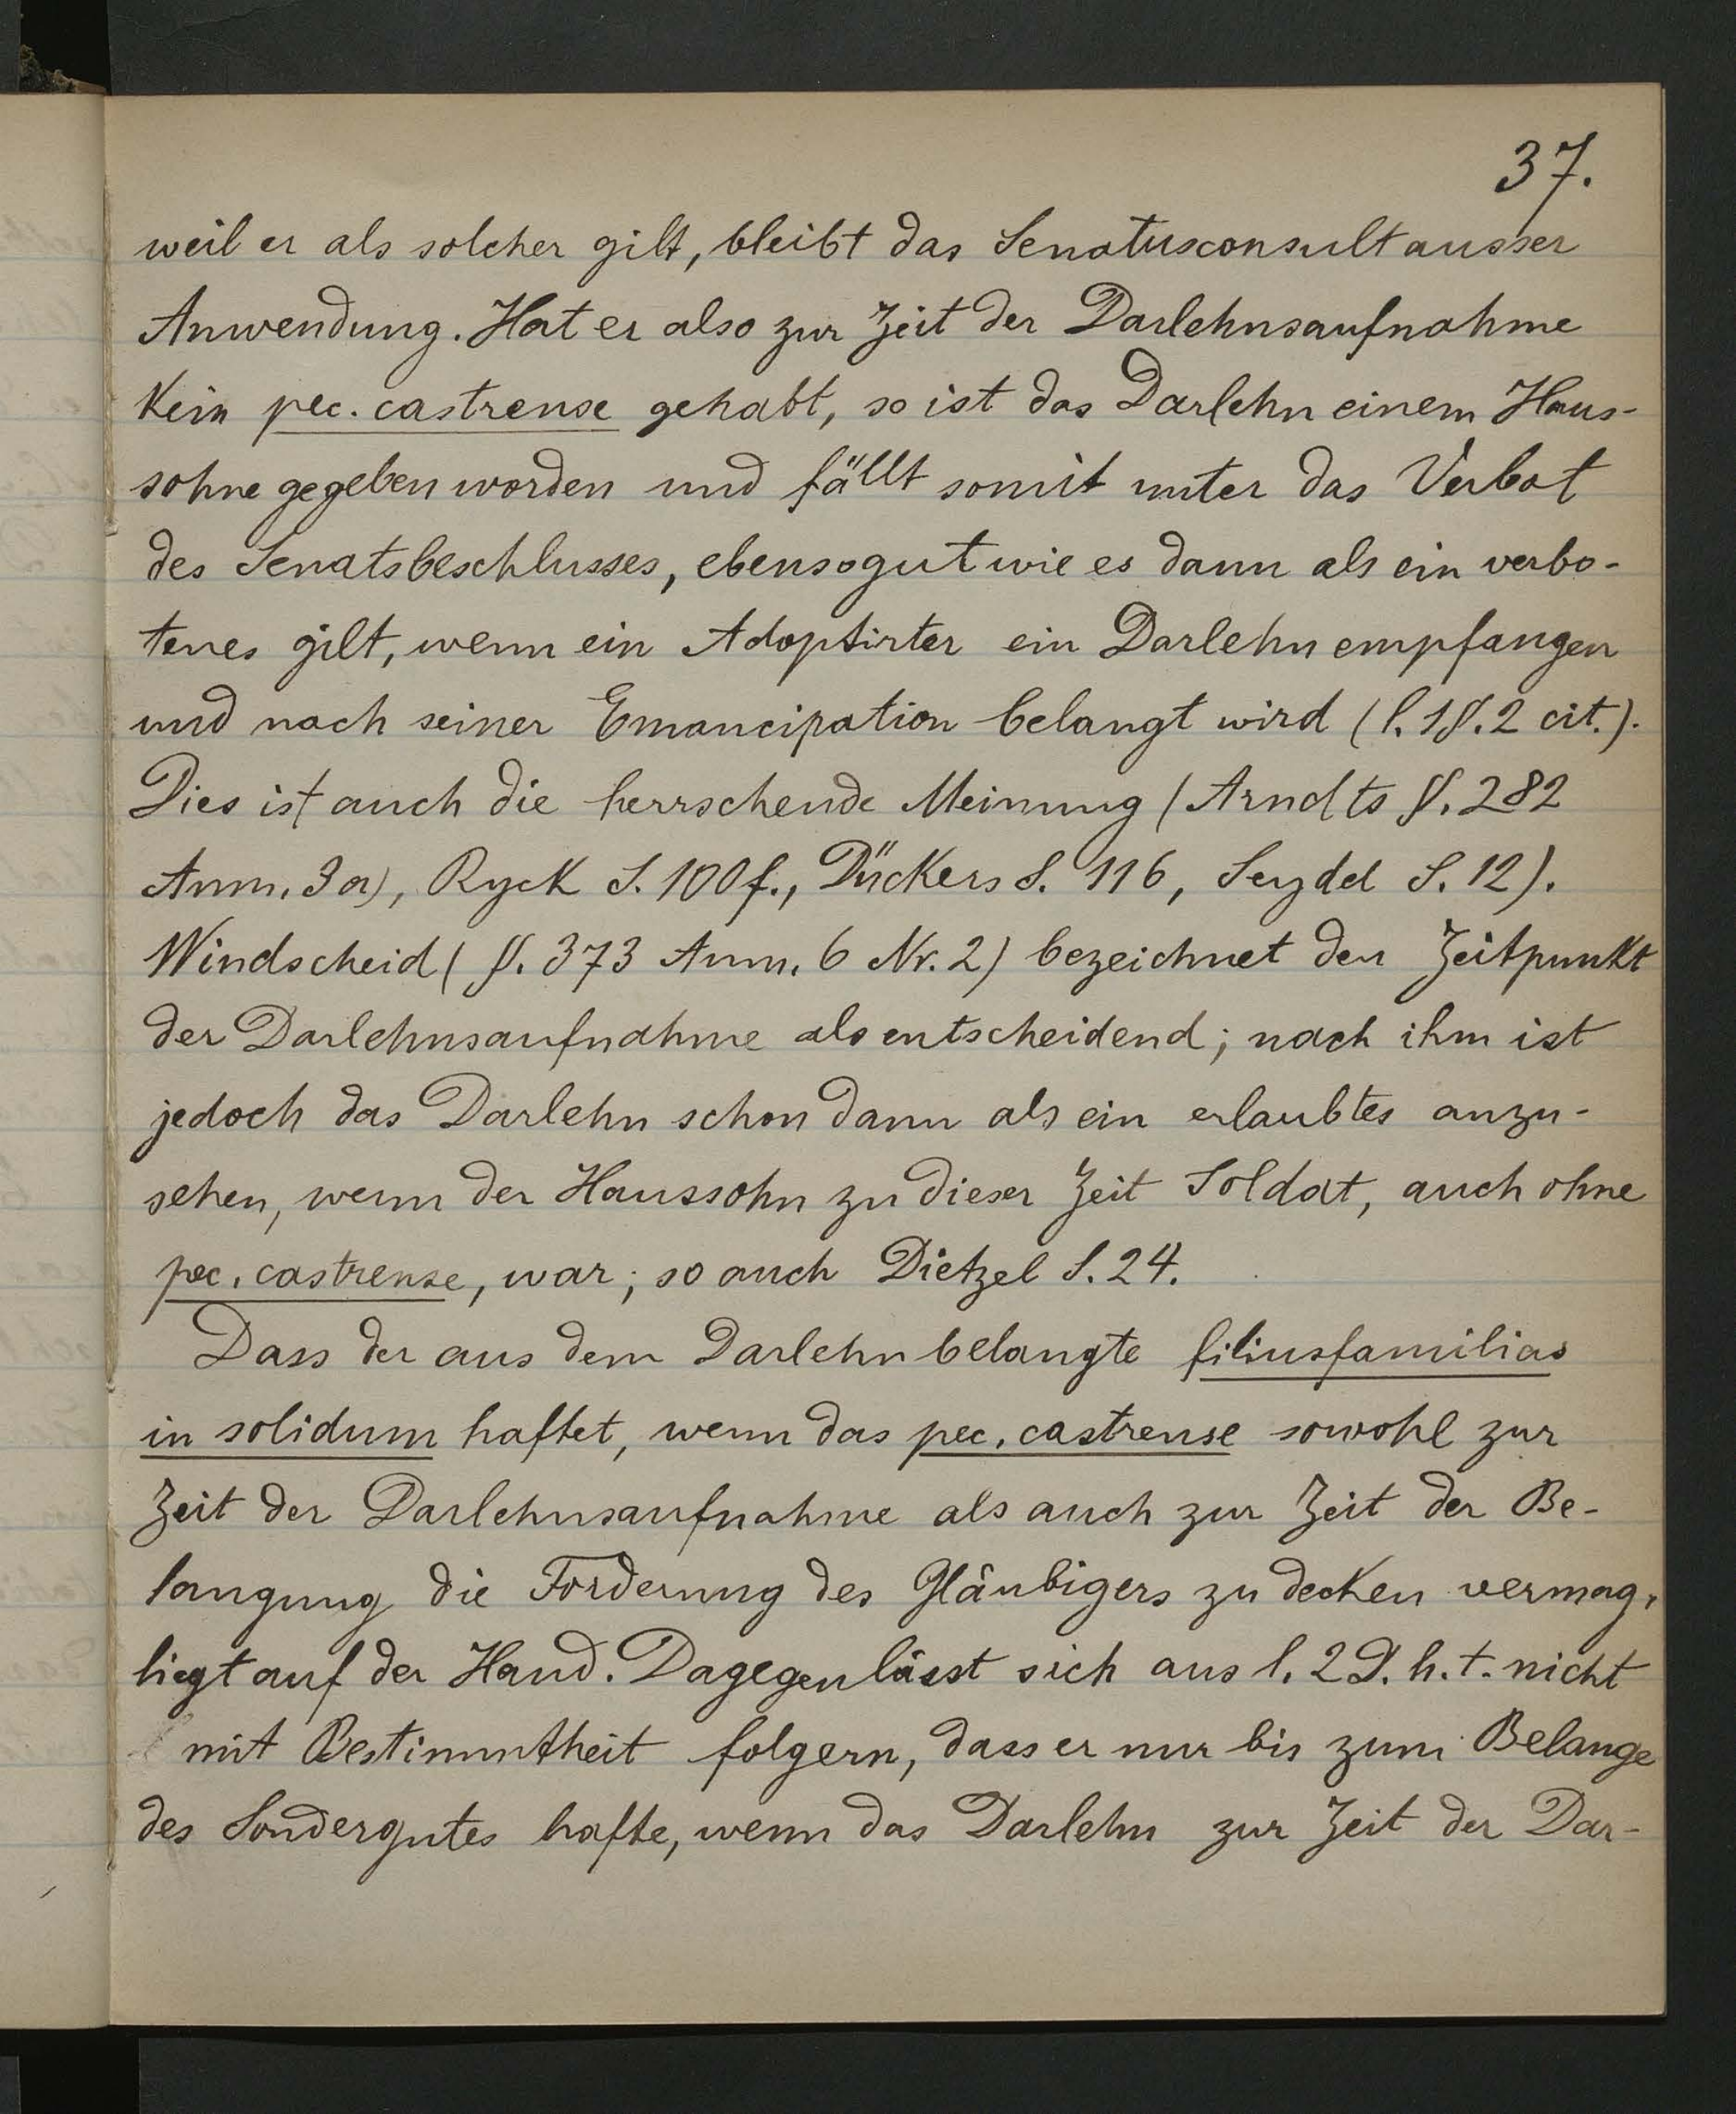 37.
weil er als solcher gilt, bleibt das Senatusconsult ausser
Anwendung. Hat er also zur Zeit der Darlehnsaufnahme
kein pec. castrense gehabt, so ist das Darlehn einem Haus-
sohne gegeben worden und fällt somit unter das Verbot
des Senatsbeschlusses, ebensogut wie es dann als ein verbo-
tenes gilt, wenn ein Adoptirter ein Darlehn empfangen
und nach seiner Emancipation belangt wird (l. 1 §. 2 cit.).
Dies ist auch die herrschende Meinung (Arndts §. 282
Anm. 3 a), Ryck S. 100 f., Dückers S. 116, Seydel S. 12).
Windscheid (§. 373 Anm. 6 Nr. 2) bezeichnet den Zeitpunkt
der Darlehnsaufnahme als entscheidend; nach ihm ist
jedoch das Darlehn schon dann als ein erlaubtes anzu-
sehen, wenn der Haussohn zu dieser Zeit Soldat, auch ohne
pec. castrense, war; so auch Dietzel S. 24.
Dass der aus dem Darlehn belangte filiusfamilias
in solidum haftet, wenn das pec. castrense sowohl zur
Zeit der Darlehnsaufnahme als auch zur Zeit der Be-
langung die Forderung des Gläubigers zu decken vermag,
liegt auf der Hand. Dagegen lässt sich aus l. 2 D. h. t. nicht
mit Bestimmtheit folgern, dass er nur bis zum Belange
des Sondergutes hafte, wenn das Darlehn zur Zeit der Dar-